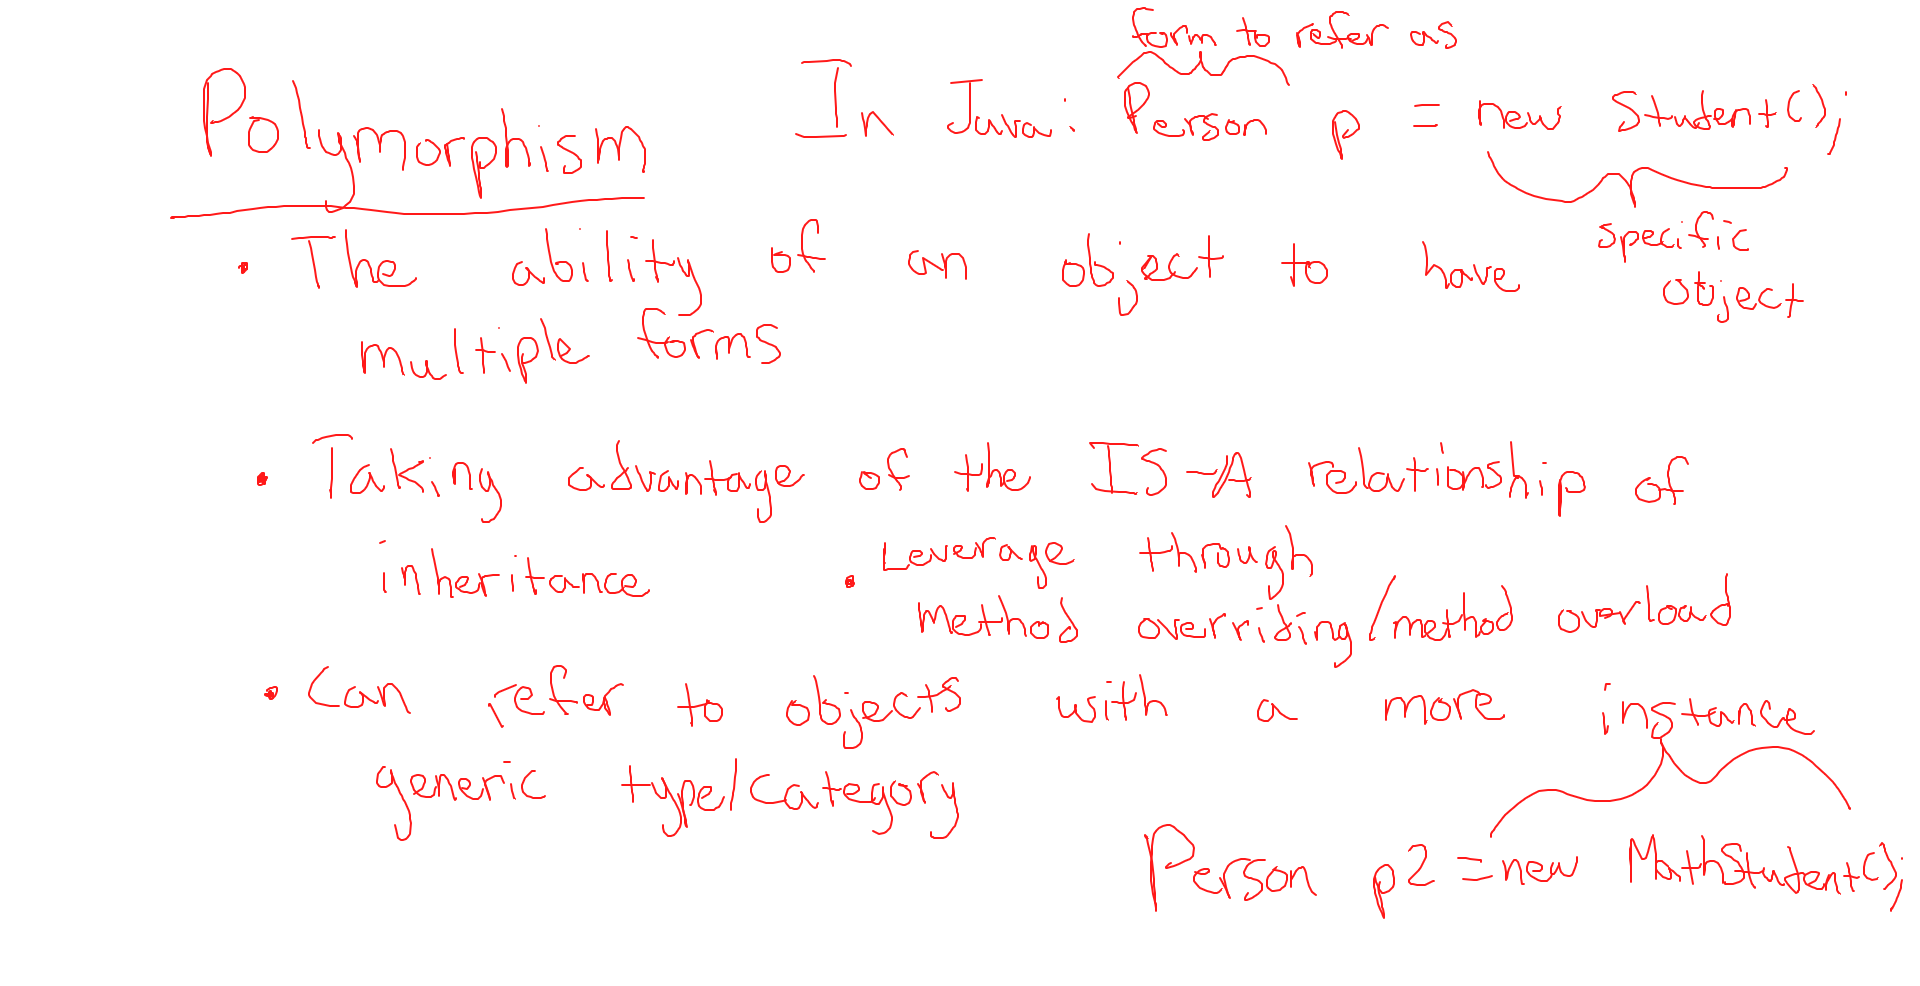 form to refer as
Polymorphism
In Java: Person p = new Student();
specific
object
• The ability of an object to have
multiple forms
• Taking advantage of the IS-A relationship of
inheritance
• Leverage through
method overriding/method overload
• Can refer to objects with a more
generic type/category
instance
Person p2 = new MathStudent();